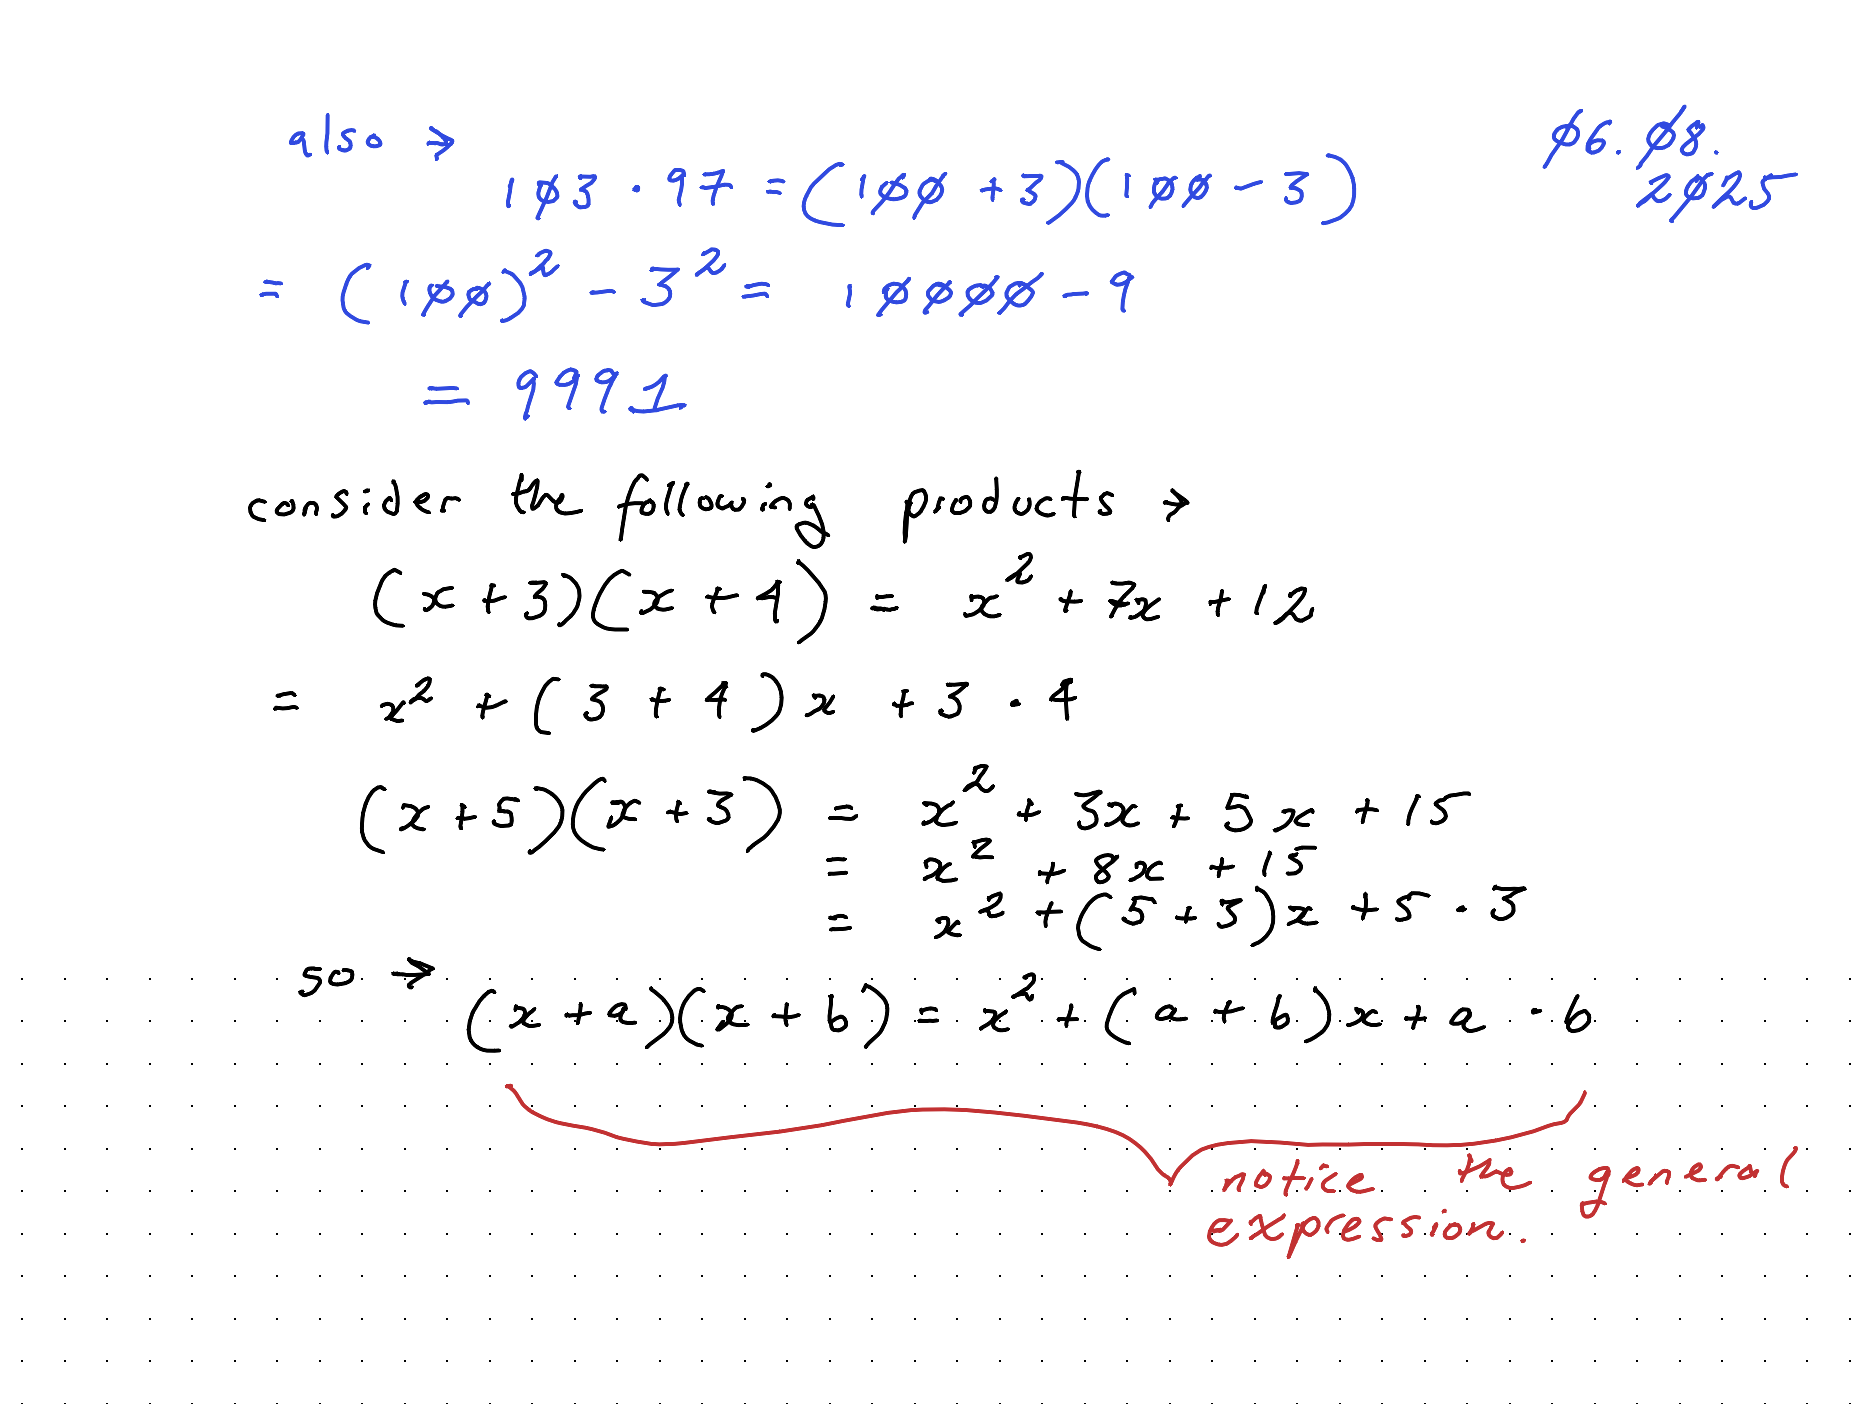 also →
06.08.
2025
103 · 97 = (100 + 3)(100 - 3)
= (100)² - 3² = 10000 - 9
= 9991
consider the following products →
(x + 3)(x + 4) = x² + 7x + 12
= x² + (3 + 4)x + 3 · 4
(x + 5)(x + 3) = x² + 3x + 5x + 15
= x² + 8x + 15
= x² + (5 + 3)x + 5 · 3
so →
(x + a)(x + b) = x² + (a + b)x + a · b
notice the general
expression.